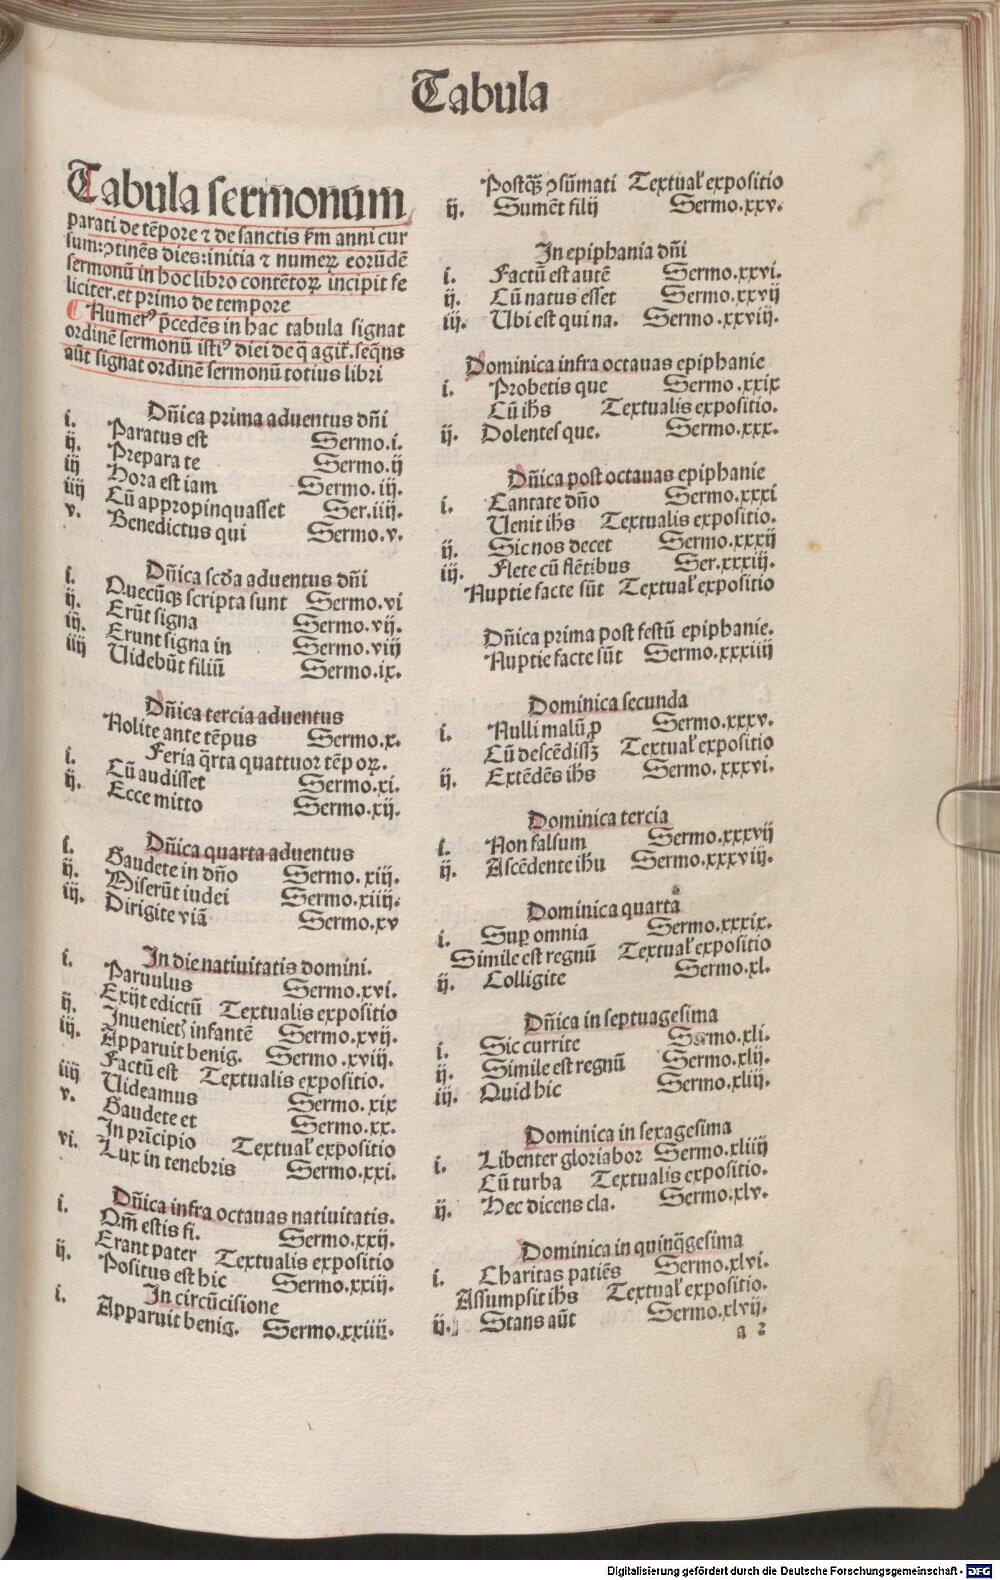 Tabula
Tabula sermonum
parati de tēpore ⁊ de sanctis ẜm anni cur
sum: ꝯtinēs dies: initia ⁊ numeꝝ eorūdē
sermonū in hoc libro contētoꝝ incipit fe
liciter. et primo de tempore
¶ Numerꝰ p̄cedēs in hac tabula signat
ordinē sermonū istiꝰ diei de q̄ agit̄. seq̄ns
aūt signat ordinē sermonū totius libri
Dn̄ica prima aduentus dn̄i
i. Paratus est Sermo.i.
ij. Prepara te Sermo.ij
iij Hora est iam Sermo.iij.
iiij Cū appropinquasset Ser.iiij.
v. Benedictus qui Sermo.v.
Dn̄ica scd̄a aduentus dn̄i
i. Quecūqꝫ scripta sunt Sermo.vi
ij. Erūt signa Sermo.vij.
iij. Erunt signa in Sermo.viij
iiij Uidebūt filiū Sermo.ix.
Dn̄ica tercia aduentus
Nolite ante tēpus Sermo.x.
Feria q̄rta quattuor tēpoꝝ.
i. Cū audisset Sermo.xi.
ij. Ecce mitto Sermo.xij.
Dn̄ica quarta aduentus
i. Gaudete in dn̄o Sermo.xiij.
ij. Miserūt iudei Sermo.xiiij.
iij. Dirigite viā Sermo.xv
In die natiuitatis domini.
i. Paruulus Sermo.xvi.
Exijt edictū Textualis expositio
ij. Inuenietꝭ infantē Sermo.xvij.
iij. Apparuit benig. Sermo.xviij.
Factū est Textualis expositio.
iiij Uideamus Sermo.xix
v. Gaudete et Sermo.xx.
In pri̅cipio Textual̓ expositio
vi. Lux in tenebris Sermo.xxi.
Dn̄ica infra octauas natiuitatis.
i. Om̄ estis fi. Sermo.xxij.
Erant pater Textualis expositio
ij. Positus est hic Sermo.xxiij.
In circūcisione
i. Apparuit benig. Sermo.xxiiij.
Postqꝫ̄ ꝯsūmati Textual̓ expositio
ij. Sumēt filij Sermo.xxv.
In epiphania dn̄i
i. Factū est autē Sermo.xxvi.
ij. Cū natus esset Sermo.xxvij
iij. Ubi est qui na. Sermo.xxviij.
Dominica infra octauas epiphanie
i. Probetis que Sermo.xxix
Cū ih̄s Textualis expositio.
ij. Dolentes que. Sermo.xxx.
Dn̄ica post octauas epiphanie
i. Cantate dn̄o Sermo.xxxi
Uenit ih̄s Textualis expositio.
ij. Sic nos decet Sermo.xxxij
iij. Flete cū flētibus Ser.xxxiij.
Nuptie facte sūt Textual̓ expositio
Dn̄ica prima post festū epiphanie.
Nuptie facte sūt Sermo.xxxiiij
Dominica secunda
i. Nulli malū ꝓ Sermo.xxxv.
Cū descēdissꝫ Textual̓ expositio
ij. Extēdēs ih̄s Sermo.xxxvi.
Dominica tercia
i. Non falsum Sermo.xxxvij
ij. Ascēdente ih̄u Sermo.xxxviij.
Dominica quarta
i. Suꝑ omnia Sermo.xxxix.
Simile est regnū Textual̓ expositio
ij. Colligite Sermo.xl.
Dn̄ica in septuagesima
i. Sic currite Sermo.xli.
ij. Simile est regnū Sermo.xlij.
iij. Quid hic Sermo.xliij.
Dominica in sexagesima
i. Libenter gloriabor Sermo.xliiij
Cū turba Textualis expositio.
ij. Hec dicens cla. Sermo.xlv.
Dominica in quinq̄gesima
i. Charitas patiēs Sermo.xlvi.
Assumpsit ih̄s Textual̓ expositio.
ij. Stans aūt Sermo.xlvij.
a 2
Digitalisierung gefördert durch die Deutsche Forschungsgemeinschaft - DFG